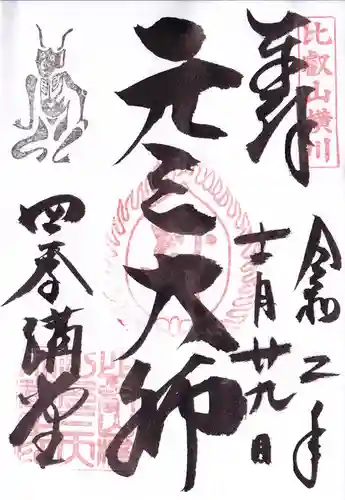 奉拝
比叡山横川
令和二年
十一月廿九日
元三大師
四季講堂